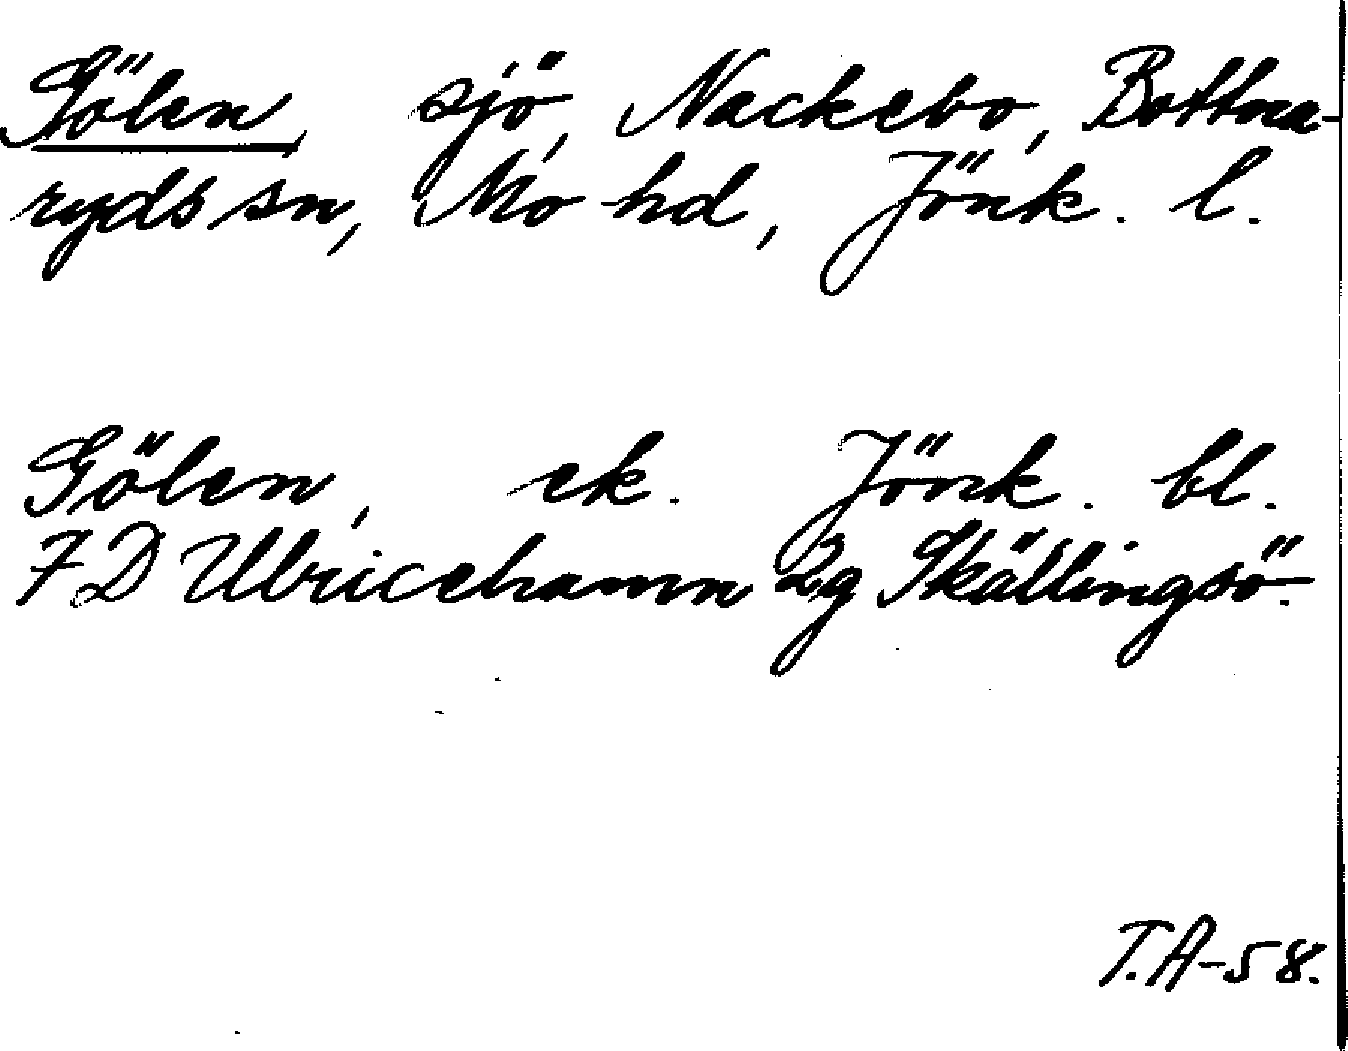 Gölen, sjö, Nackebo, Bottna-
ryds sn, Mo hd, Jönk. l.
Gölen, ek. Jönk. bl.
7D Ulricehamn 2g Skällingsö.
T.A-58.